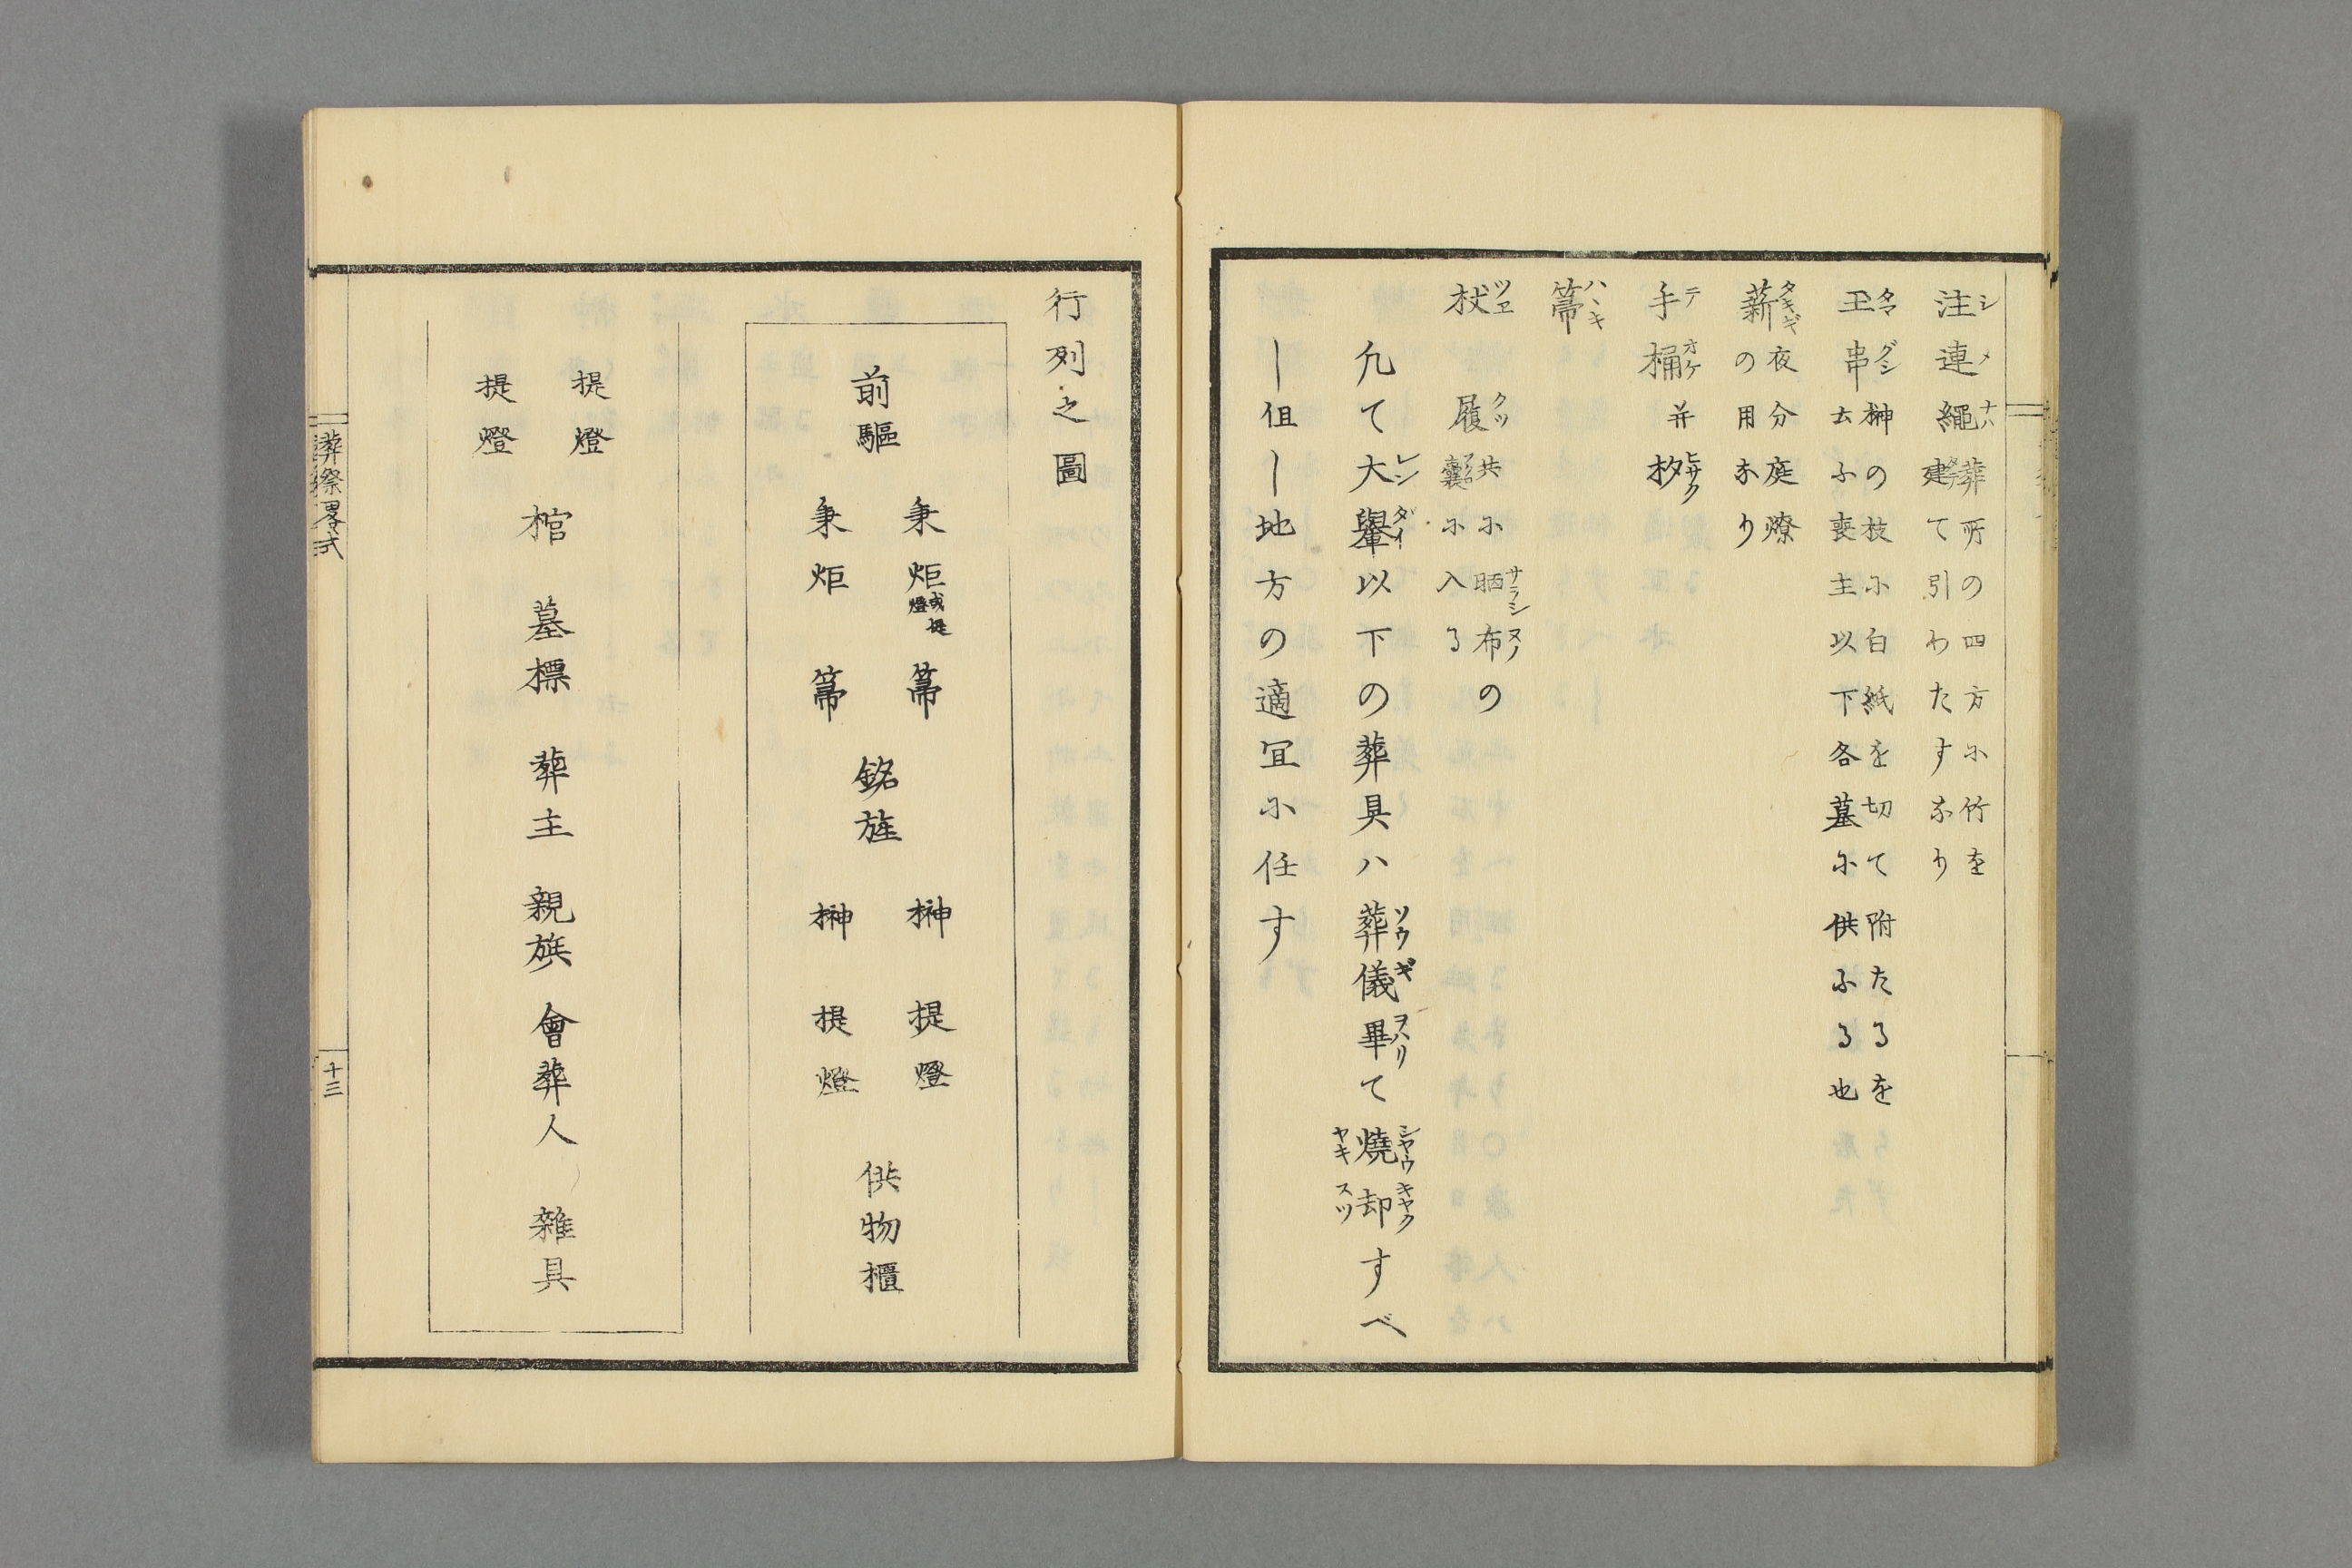 注連繩 葬所の四方に竹を
建て引わたすなり
玉串 榊の枝に白紙を切て附たるを
云ふ喪主以下各墓に供ふる也
薪 夜分庭燎
の用なり
手桶并杓
箒
杖 履 共に晒布の
嚢に入る
凢て大轝以下の葬具ハ葬儀畢て燒却すべ
し但し地方の適冝に任す
行列之圖
前驅
秉炬 或提燈
秉炬
箒
箒
銘旌
榊
榊
提燈
提燈
供物櫃
提燈
提燈
棺
墓標
葬主
親族
會葬人
雜具
葬祭畧式
十三